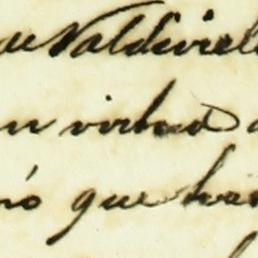 de Valdiviel
en virtud d
nó que ha